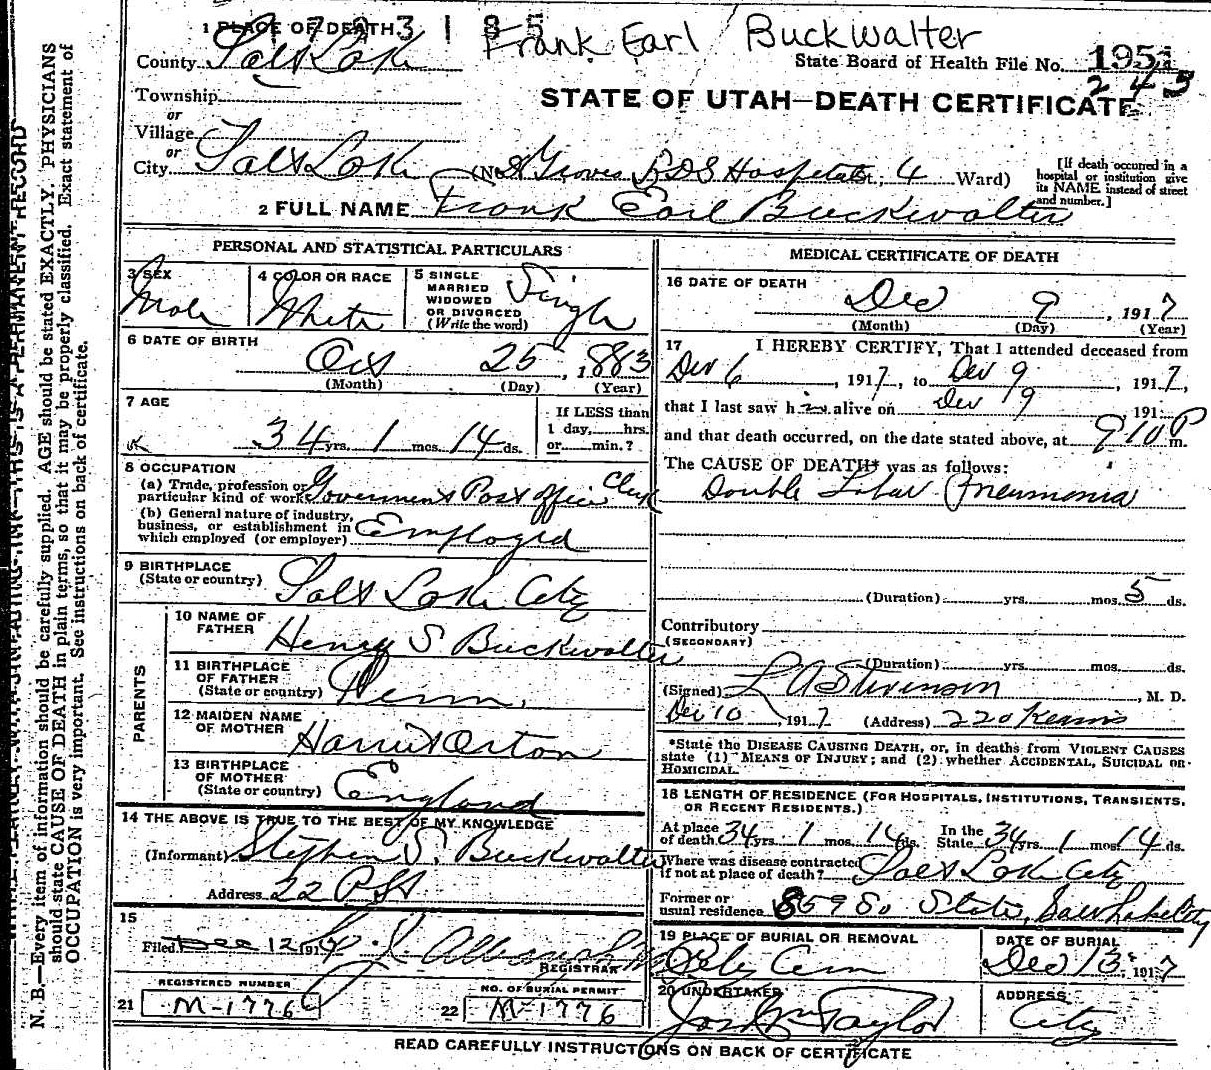 1 7 2 3 1 8 5
1 PLACE OF DEATH
Frank Earl Buckwalter
County Salt Lake
State Board of Health File No. 1951
245
Township
STATE OF UTAH—DEATH CERTIFICATE
or
Village
or
City Salt Lake (No. Groves LDS Hospital St.; 4 Ward)
[If death occurred in a
hospital or institution give
its NAME instead of street
and number.]
2 FULL NAME Frank Earl Buckwalter
PERSONAL AND STATISTICAL PARTICULARS
3 SEX
Male
4 COLOR OR RACE
White
5 SINGLE
MARRIED
WIDOWED
OR DIVORCED
(Write the word)
Single
6 DATE OF BIRTH
Oct 25, 1883
(Month) (Day) (Year)
7 AGE
34 yrs. 1 mos. 14 ds.
If LESS than
1 day, hrs.
or min.?
8 OCCUPATION
(a) Trade, profession or
particular kind of work Government Post office Clerk
(b) General nature of industry,
business, or establishment in
which employed (or employer) Employed
9 BIRTHPLACE
(State or country) Salt Lake City
PARENTS
10 NAME OF
FATHER Henry S Buckwalter
11 BIRTHPLACE
OF FATHER
(State or country) Penn.
12 MAIDEN NAME
OF MOTHER Harriet Orton
13 BIRTHPLACE
OF MOTHER
(State or country) England
14 THE ABOVE IS TRUE TO THE BEST OF MY KNOWLEDGE
(Informant) Stephen S. Buckwalter
Address 22 P St
15
Filed Dec 12 191
REGISTRAR
REGISTERED NUMBER
21 M-1776
NO. OF BURIAL PERMIT
22 M-1776
MEDICAL CERTIFICATE OF DEATH
16 DATE OF DEATH
Dec 9, 1917
(Month) (Day) (Year)
17 I HEREBY CERTIFY, That I attended deceased from
Dec 6, 1917, to Dec 9, 1917,
that I last saw him alive on Dec 9, 191
and that death occurred, on the date stated above, at 910 P m.
The CAUSE OF DEATH* was as follows:
Double Lobar Pneumonia
(Duration) yrs. mos. 5 ds.
Contributory
(SECONDARY)
(Duration) yrs. mos. ds.
(Signed) L A Stevenson, M. D.
Dec 10, 1917 (Address) 220 Kearns
*State the DISEASE CAUSING DEATH, or, in deaths from VIOLENT CAUSES
state (1) MEANS OF INJURY; and (2) whether ACCIDENTAL, SUICIDAL OR
HOMICIDAL.
18 LENGTH OF RESIDENCE (FOR HOSPITALS, INSTITUTIONS, TRANSIENTS,
OR RECENT RESIDENTS.)
At place
of death 34 yrs. 1 mos. 14 ds.
In the
State 34 yrs. 1 mos. 14 ds.
Where was disease contracted
if not at place of death? Salt Lake City
Former or
usual residence State, Salt Lake City
19 PLACE OF BURIAL OR REMOVAL
City Cem
DATE OF BURIAL
Dec 13, 1917
20 UNDERTAKER
Jos Wm Taylor
ADDRESS
City
READ CAREFULLY INSTRUCTIONS ON BACK OF CERTIFICATE
WRITE PLAINLY WITH UNFADING INK—THIS IS A PERMANENT RECORD
N. B.—Every item of information should be carefully supplied. AGE should be stated EXACTLY. PHYSICIANS
should state CAUSE OF DEATH in plain terms, so that it may be properly classified. Exact statement of
OCCUPATION is very important. See instructions on back of certificate.